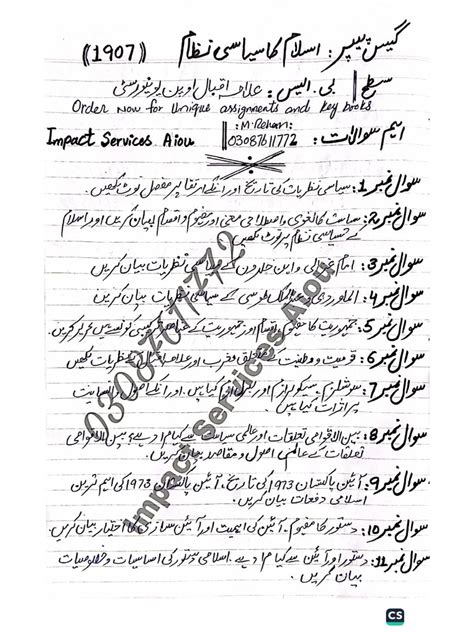 گیس پیپر: اسلام کا سیاسی نظام ((1907))
سطح: بی۔ ایس: علامہ اقبال اوپن یونیورسٹی
Order Now for Unique assignments and key books
اہم سوالات: :M.Rehan: 03087611772 Impact Services Aiou
سوال نمبر 1: سیاسی نظریات کی تاریخ اور انکے ارتقا پر مفصل نوٹ لکھیں۔
سوال نمبر 2: سیاست کا لغوی و اصطلاحی معنی اور مفہوم و اقسام بیان کریں اور اسلام
کے سیاسی نظام پر نوٹ لکھیں
سوال نمبر 3: امام غزالی و ابن خلدون کے سیاسی نظریات بیان کریں
سوال نمبر 4: الماوردی و طوسی کے سیاسی نظریات بیان کریں
سوال نمبر 5: جمہوریت کا مفہوم، اقسام اور جمہوریت کے عناصر ترکیبی نوٹ تحریر کریں۔
سوال نمبر 6: قومیت و وطنیت کے متعلق مغرب اور علامہ اقبال کے نظریات لکھیں
سوال نمبر 7: سوشلزم، سیکولرازم اور کیا ہیں۔ اور انکے اصول و انسانیت
پر اثرات کیا ہیں۔
سوال نمبر 8: بین الاقوامی تعلقات اور عالمی سیاست سے کیا مراد ہے؟ بین الاقوامی
تعلقات کے عالمی اصول و مقاصد بیان کریں۔
سوال نمبر 9: آئین پاکستان 1973 کی تاریخ، آئین پاکستان 1973 کی اہم ترین
اسلامی دفعات بیان کریں۔
سوال نمبر 10: دستور کا مفہوم، آئین کی اہمیت اور آئین سازی کا اختیار بیان کریں۔
سوال نمبر 11: دستور اور آئین سے کیا مراد ہے۔ اسلامی دستور کی اساسیات و خصوصیات
بیان کریں۔
03087611772
Impact Services Aiou
CS